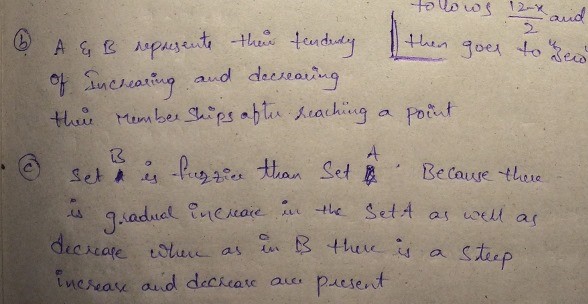 follows 12-x/2 and
then goes to "zero"
(b) A & B represents their tendency
of Increasing and decreasing
their Member Ships after reaching a point
(c) Set B is fuzzier than Set A. Because there
is gradual increase in the Set A as well as
decrease when as in B there is a steep
increase and decrease are present